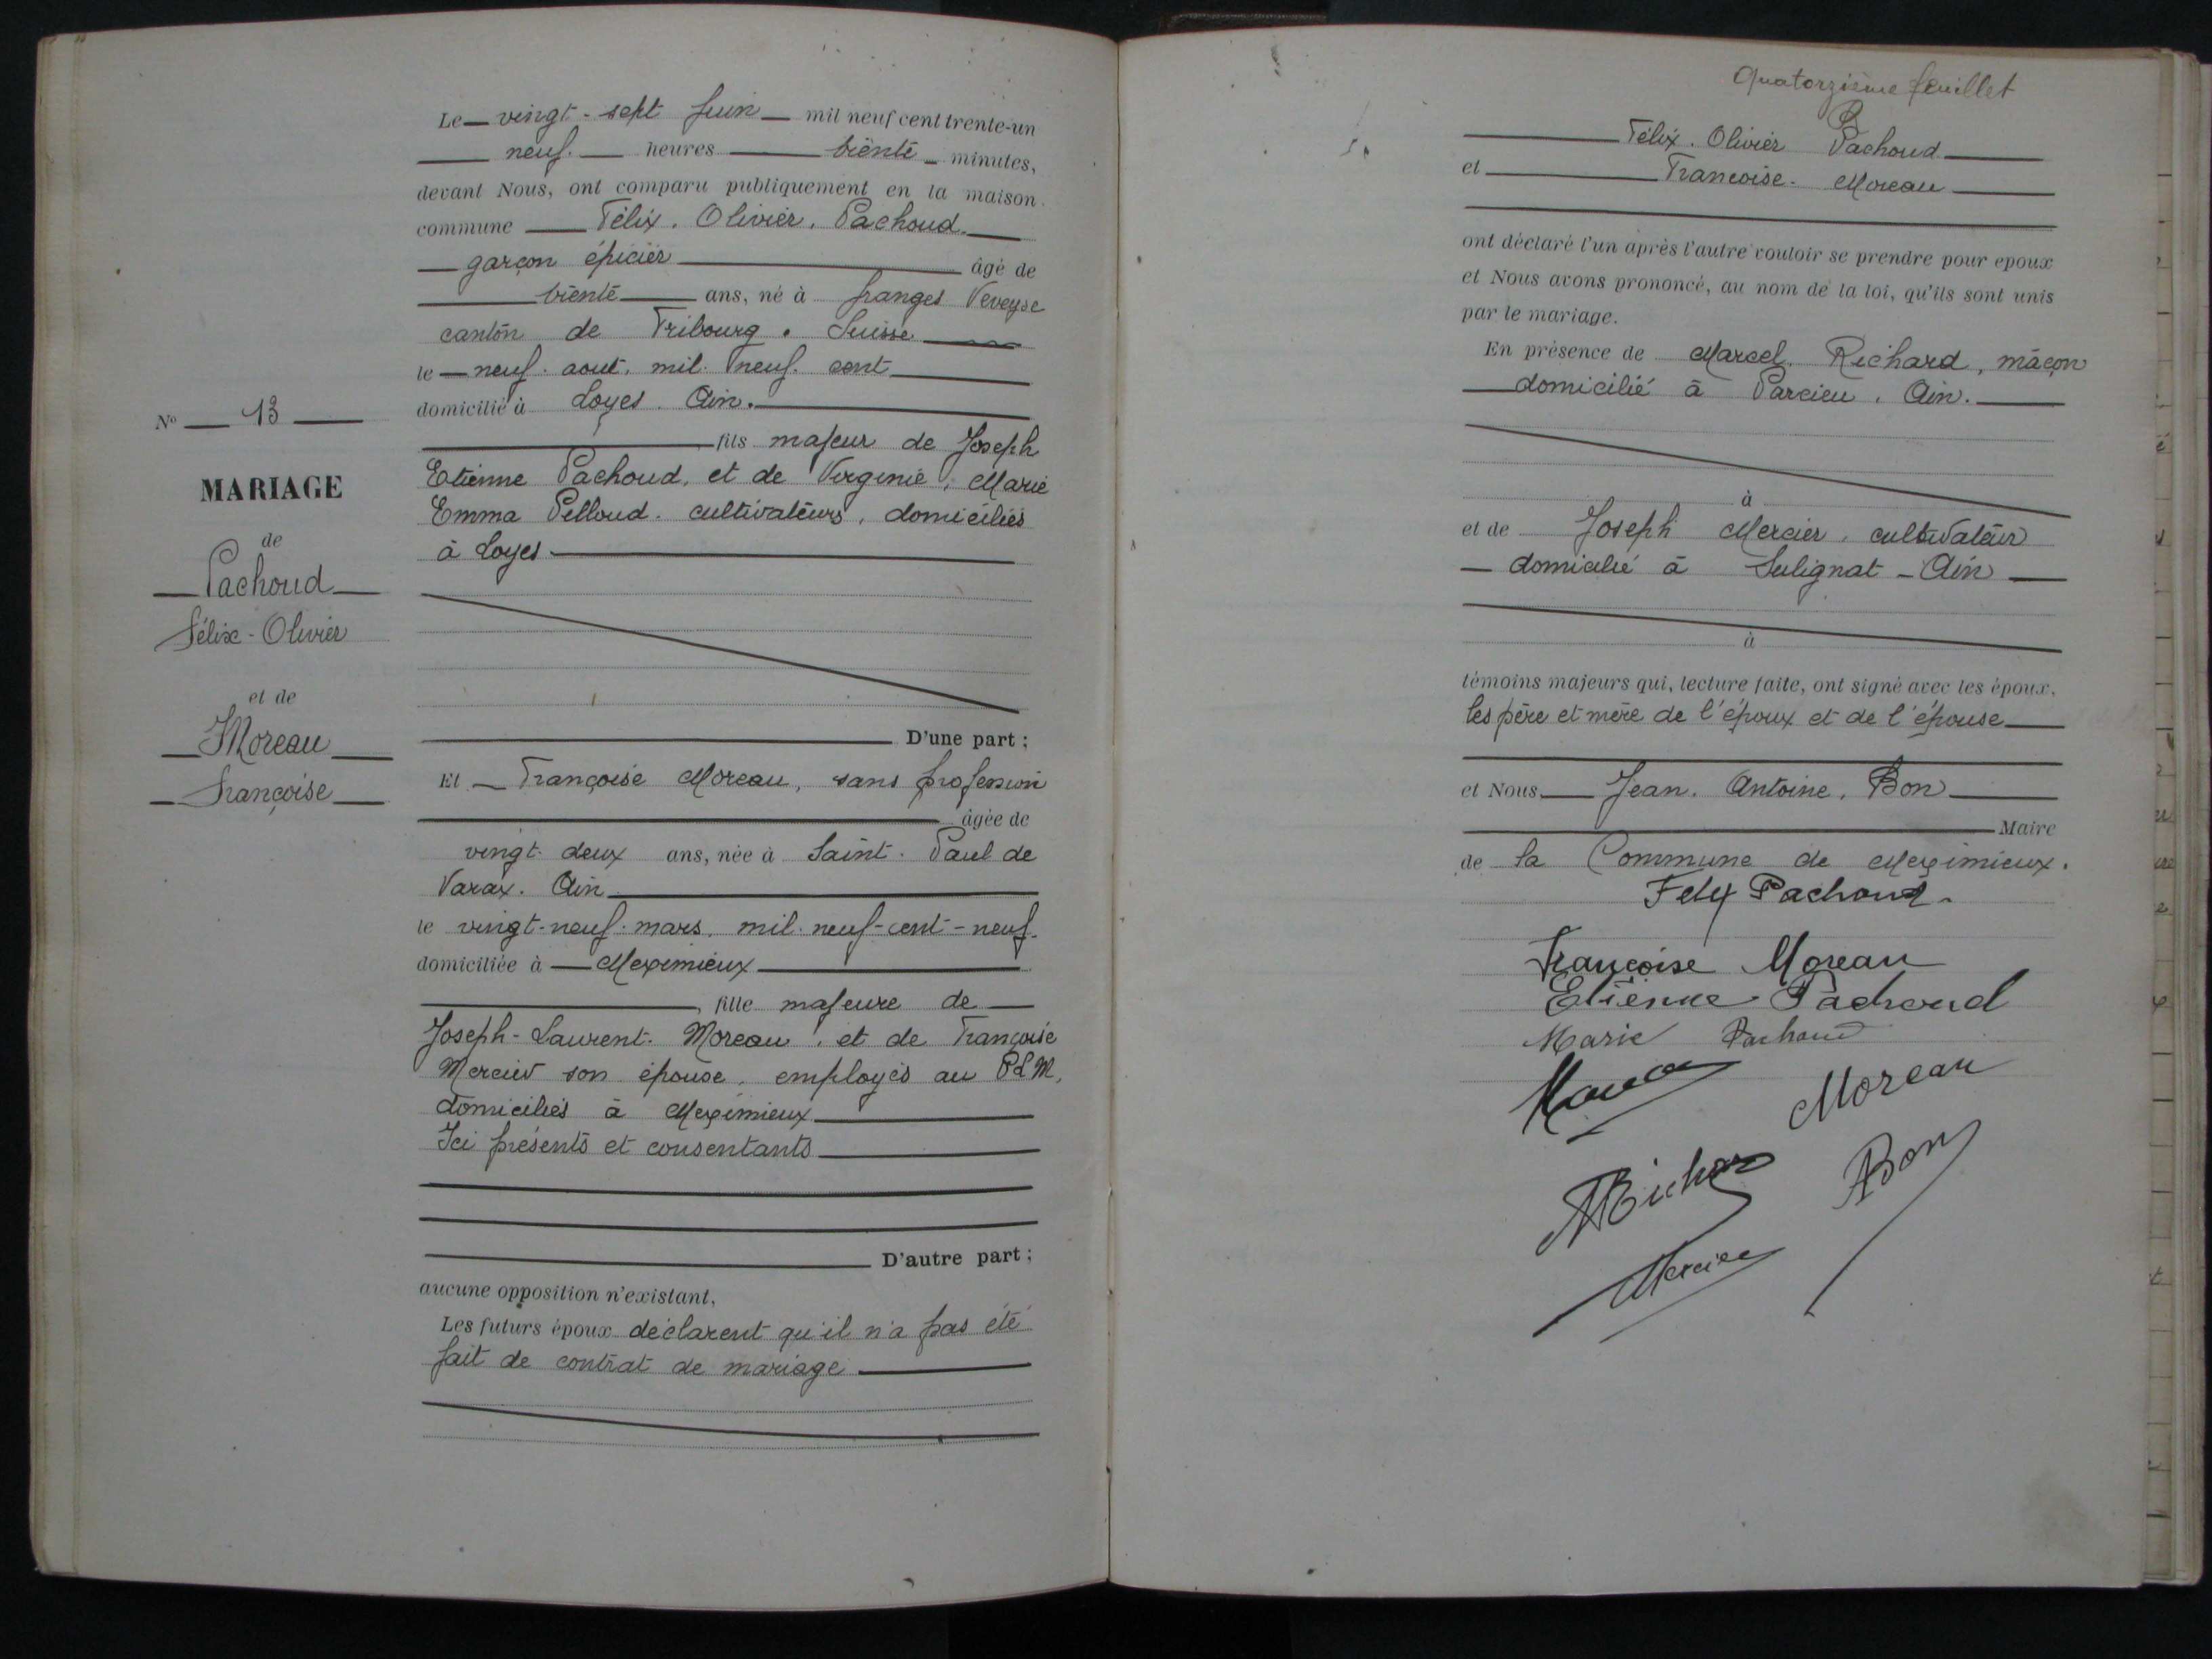 Le vingt-sept juin mil neuf cent trente-un
neuf heures trente minutes,
devant Nous, ont comparu publiquement en la maison
commune Félix. Olivier. Pachoud.
garçon épicier âgé de
trente ans, né à franges Veveyse
canton de Fribourg. Suisse
le neuf. aout. mil neuf. cent
domicilié à Loyes. Ain.
fils majeur de Joseph
Etienne Pachoud. et de Virginie, Marie
Emma Pelloud. cultivateurs, domiciliés
à Loyes
D'une part ;
Et Françoise Moreau, sans profession
âgée de
vingt-deux ans, née à Saint. Paul de
Varax. Ain
le vingt-neuf. mars. mil. neuf-cent-neuf-
domiciliée à Meximieux
fille majeure de
Joseph-Laurent. Moreau, et de Françoise
Mercier son épouse, employés au PLM,
domiciliés à Meximieux
Ici présents et consentants
D'autre part ;
aucune opposition n'existant,
Les futurs époux déclarent qu'il n'a pas été
fait de contrat de mariage
N° 13
MARIAGE
de
Pachoud
Félix-Olivier
et de
Moreau
Françoise
Quatorzième feuillet
B
Félix. Olivier Pachoud
et Francoise. Moreau
ont déclaré l'un après l'autre vouloir se prendre pour epoux
et Nous avons prononcé, au nom de la loi, qu'ils sont unis
par le mariage.
En présence de Marcel. Richard, maçon
domicilié à Parcieu. Ain.
à
et de Joseph Mercier, cultivateur
domicilié à Sulignat - Ain
à
témoins majeurs qui, lecture faite, ont signé avec les époux,
les père et mère de l'époux et de l'épouse
et Nous Jean. Antoine. Bon
Maire
de la Commune de Meximieux.
Felix Pachoud.
Françoise Moreau
Etienne Pachoud
Marie Pachoud
Moreau
MRichard
Bon
Mercier